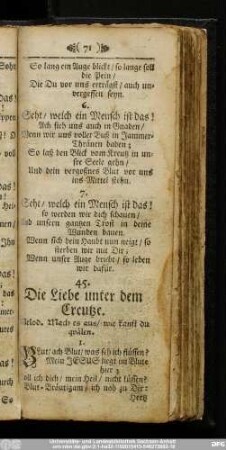 71
So lang ein Auge blickt / so lange soll
die Pein /
Die Du vor uns erträgst / auch un-
vergessen seyn.
6.
Seht / welch ein Mensch ist das!
Ach sieh uns auch in Gnaden /
Wenn wir uns voller Buß in Jammer-
Thränen baden;
So laß den Blick vom Kreutz in un-
sre Seele gehn /
Und dein vergoßnes Blut vor uns
ins Mittel stehn.
7.
Seht / welch ein Mensch ist das!
so werden wir dich schauen /
Und unsern gantzen Trost in deine
Wunden bauen.
Wenn sich dein Haubt nun neigt / so
sterben wir mit Dir;
Wenn unser Auge bricht / so leben
wir dafür.
45.
Die Liebe unter dem
Creutze.
Melod. Machs es aus / wie kanst du
quälen.
1.
Blut / ach Blut / was seh ich fliessen?
Mein JESUS liegt im Blute
hier;
soll ich dich / mein Heil / nicht küssen?
Blut-Bräutigam; ich nah zu Dir:
Hertz